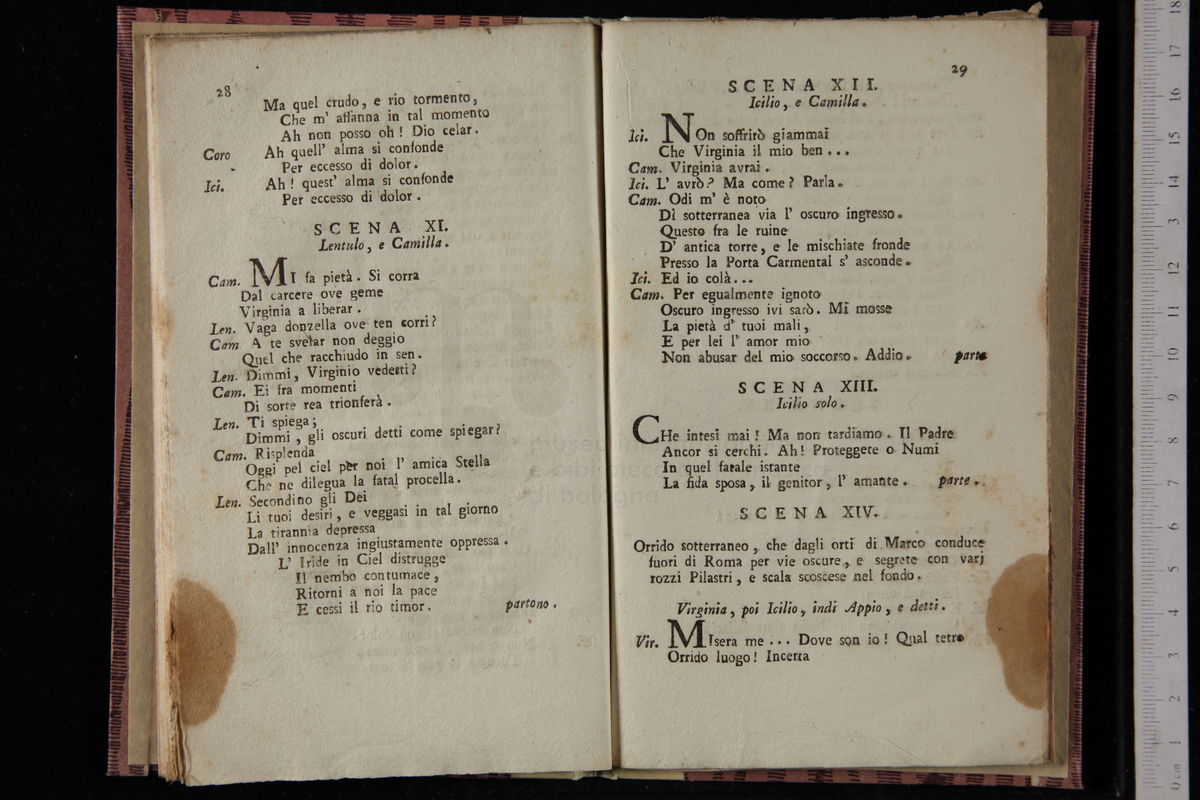 28
Ma quel crudo, e rio tormento,
Che m' affanna in tal momento
Ah non posso oh! Dio celar.
Coro Ah quell' alma si confonde
Per eccesso di dolor.
Ici. Ah! quest' alma si confonde
Per eccesso di dolor.
SCENA XI.
Lentulo, e Camilla.
Cam. MI fa pietà. Si corra
Dal carcere ove geme
Virginia a liberar.
Len. Vaga donzella ove ten corri?
Cam A te svelar non deggio
Quel che racchiudo in sen.
Len. Dimmi, Virginio vedesti?
Cam. Ei fra momenti
Di sorte rea trionferà.
Len. Ti spiega;
Dimmi, gli oscuri detti come spiegar?
Cam. Risplenda
Oggi pel ciel per noi l' amica Stella
Che ne dilegua la fatal procella.
Len. Secondino gli Dei
Li tuoi desiri, e veggasi in tal giorno
La tirannia depressa
Dall' innocenza ingiustamente oppressa.
L' Iride in Ciel distrugge
Il nembo contumace,
Ritorni a noi la pace
E cessi il rio timor. partono.
29
SCENA XII.
Icilio, e Camilla.
Ici. NOn soffrirò giammai
Che Virginia il mio ben...
Cam. Virginia avrai.
Ici. L' avrò? Ma come? Parla.
Cam. Odi m' è noto
Di sotterranea via l' oscuro ingresso.
Questo fra le ruine
D' antica torre, e le mischiate fronde
Presso la Porta Carmental s' asconde.
Ici. Ed io colà...
Cam. Per egualmente ignoto
Oscuro ingresso ivi sarò. Mi mosse
La pietà d' tuoi mali,
E per lei l' amor mio
Non abusar del mio soccorso. Addio. parte
SCENA XIII.
Icilio solo.
CHe intesi mai! Ma non tardiamo. Il Padre
Ancor si cerchi. Ah! Proteggete o Numi
In quel fatale istante
La fida sposa, il genitor, l' amante. parte.
SCENA XIV.
Orrido sotterraneo, che dagli orti di Marco conduce
fuori di Roma per vie oscure, e segrete con varj
rozzi Pilastri, e scala scoscese nel fondo.
Virginia, poi Icilio, indi Appio, e detti.
Vir. MIsera me... Dove son io! Qual tetro
Orrido luogo! Incerta